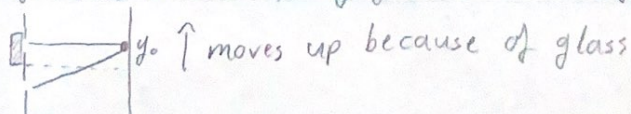 y₀ ↑ moves up because of glass